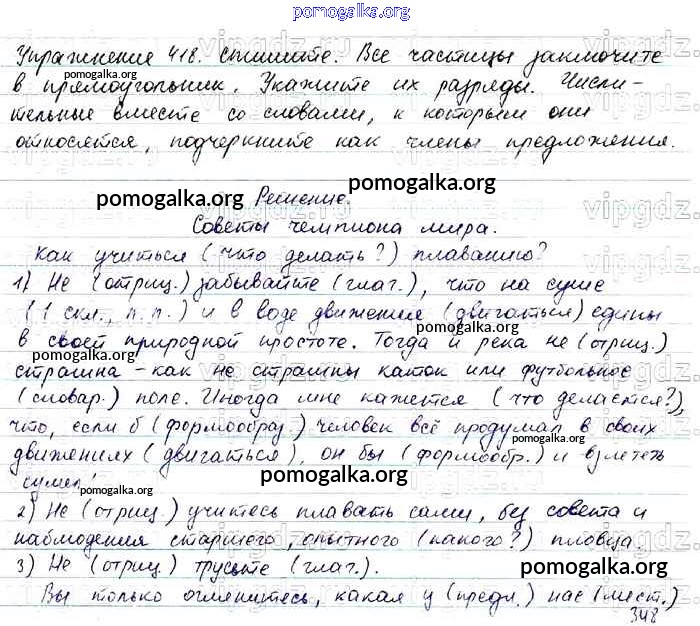 pomogalka.org
Упражнение 418. Спишите. Все частицы заключите
в прямоугольник. Укажите их разряды. Числи-
pomogalka.org
тельные вместе со словами, к которым они
относятся, подчеркните как члены предложения.
pomogalka.org
pomogalka.org
Решение.
Советы чемпиона мира.
Как учиться (что делать?) плаванию?
1) Не (отриц.) забывайте (глаг.), что на суше
(1 скл., п.п.) и в воде движения (двигаться) едины
в своей природной простоте. Тогда и река не (отриц.)
pomogalka.org
pomogalka.org
страшна - как не страшны каток или футбольное
(словар.) поле. Иногда мне кажется (что делается?),
что, если б (формообраз.) человек всё продумал в своих
pomogalka.org
движениях (двигаться), он бы (формообр.) и взлететь
pomogalka.org
сумел!
pomogalka.org
2) Не (отриц.) учитесь плавать сами, без совета и
наблюдения старшего, опытного (какого?) пловца.
pomogalka.org
3) Не (отриц.) трусьте (глаг.).
pomogalka.org
Вы только оглянитесь, какая у (предл.) нас (мест.)
348
vipgdz.ru